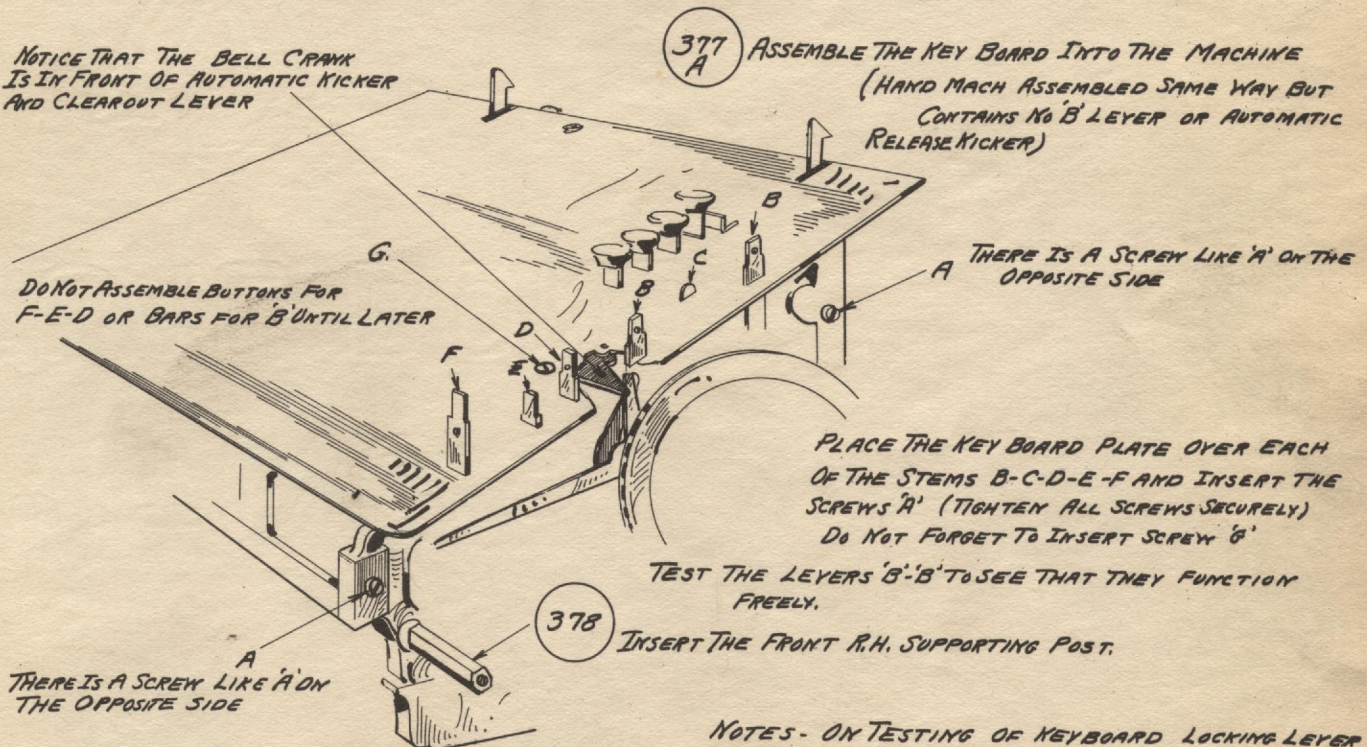 NOTICE THAT THE BELL CRANK
IS IN FRONT OF AUTOMATIC KICKER
AND CLEAROUT LEVER
377
A
ASSEMBLE THE KEY BOARD INTO THE MACHINE
(HAND MACH ASSEMBLED SAME WAY BUT
CONTAINS NO 'B' LEVER OR AUTOMATIC
RELEASE KICKER)
B
G.
C
A
THERE IS A SCREW LIKE 'A' ON THE
OPPOSITE SIDE
DO NOT ASSEMBLE BUTTONS FOR
F-E-D OR BARS FOR 'B' UNTIL LATER
B
D
F
E
PLACE THE KEY BOARD PLATE OVER EACH
OF THE STEMS B-C-D-E-F AND INSERT THE
SCREWS 'A' (TIGHTEN ALL SCREWS SECURELY)
DO NOT FORGET TO INSERT SCREW 'G'
TEST THE LEVERS 'B'-'B' TO SEE THAT THEY FUNCTION
FREELY.
378
INSERT THE FRONT R.H. SUPPORTING POST.
A
THERE IS A SCREW LIKE 'A' ON
THE OPPOSITE SIDE
NOTES - ON TESTING OF KEYBOARD LOCKING LEVER